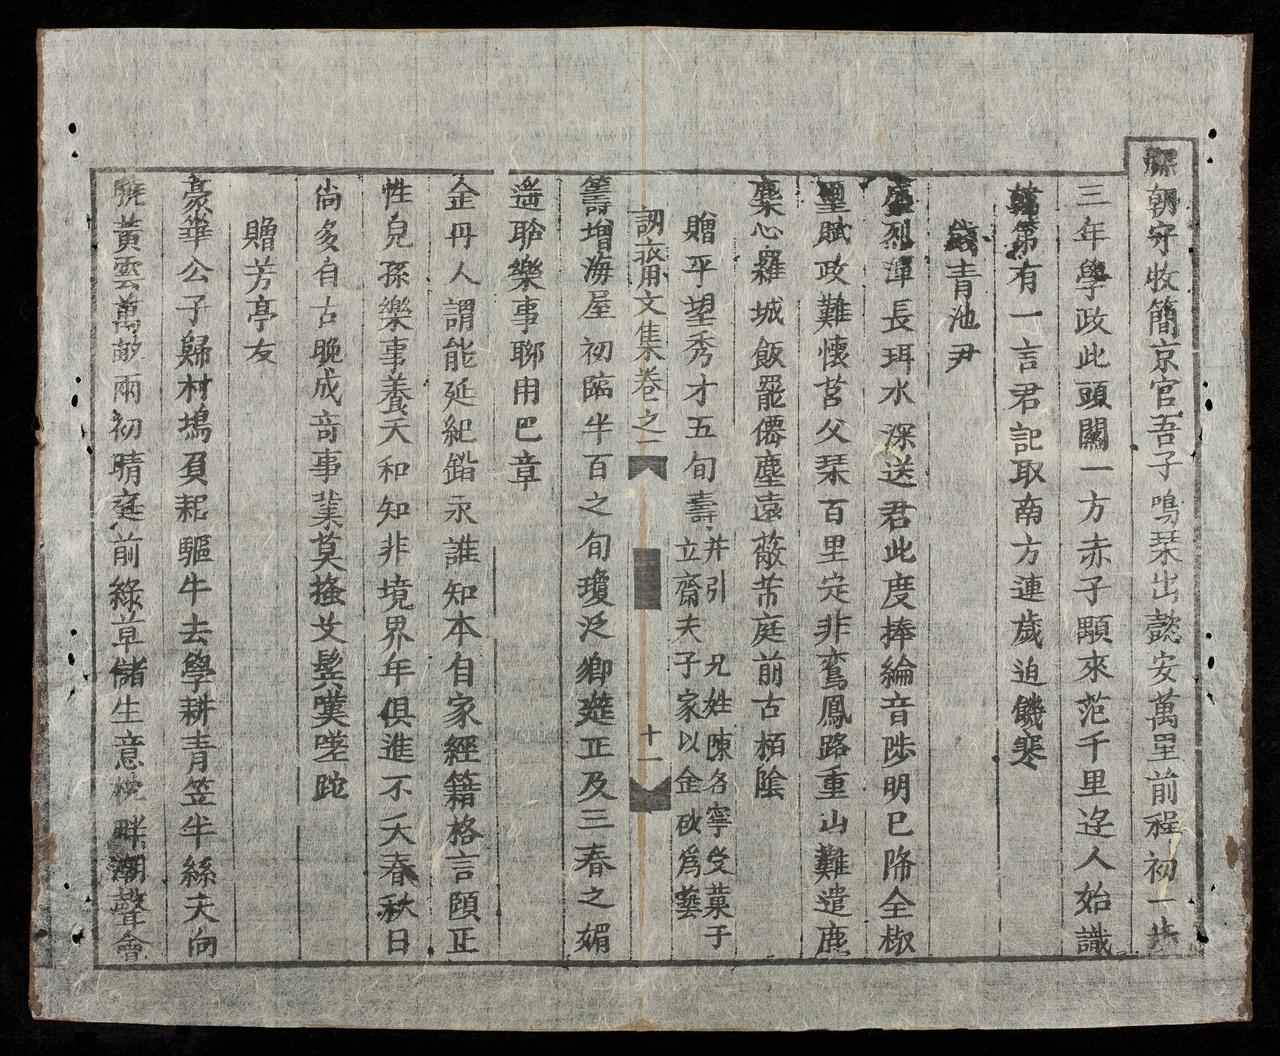 朝守收簡京官吾子鳴琹出懿安萬里前程初一步
三年學政此頭關一方赤子顒來范千里迳人始識
韓第有一言君記取南方連歲迫饑寒
青池尹
盛烈渾長珥水深送君此度捧綸音陟明已降全椒
璽賦政難懷莒父琹百里定非鸞鳳路重山難遣鹿
麋心羅城飯罷僊塵遠蔽芾庭前古栢陰
贈平望秀才五旬壽并引
兄姓陳各寧受菓子
立齋夫子家以金破爲藝
訒齋用文集卷之一
十一
籌增海屋初臨半百之旬瓊泛鄉筵正及三春之媚
遥聆樂事聊用巴章
金丹人謂能延紀鉛汞誰知本自家經籍格言頤正
性兒孫樂事養天和知非境界年俱進不夭春秋日
尚多自古晚成竒事業莫搔艾鬂嘆嗟跎
贈芳亭友
豪華公子歸村塢頁耙驅牛去學耕青笠半絲天向
晓黃雲萬畝雨初晴庭前綠草儲生意枕畔潮聲會